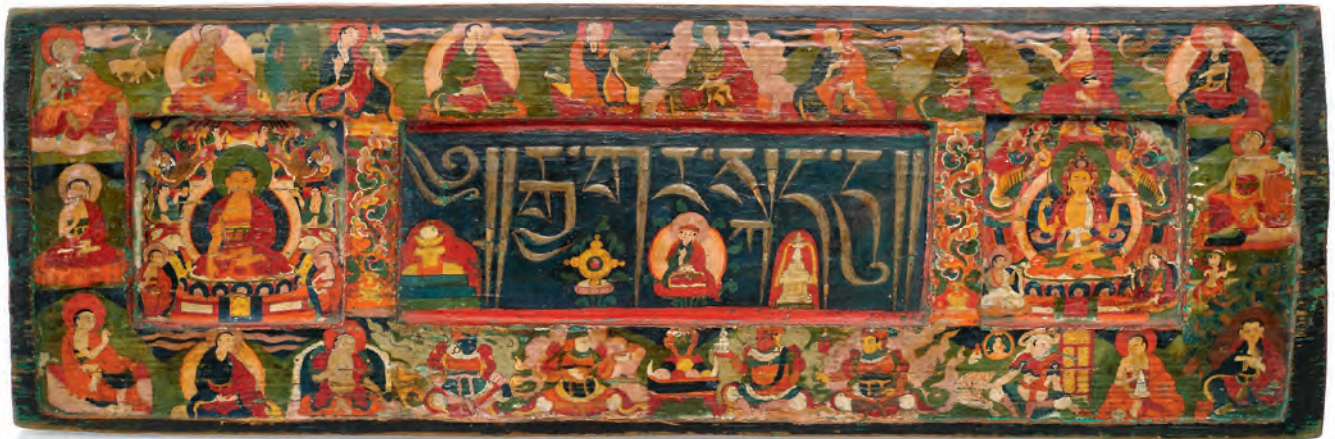 ༄༎རྒྱ་གར་སྐད་དུ༎